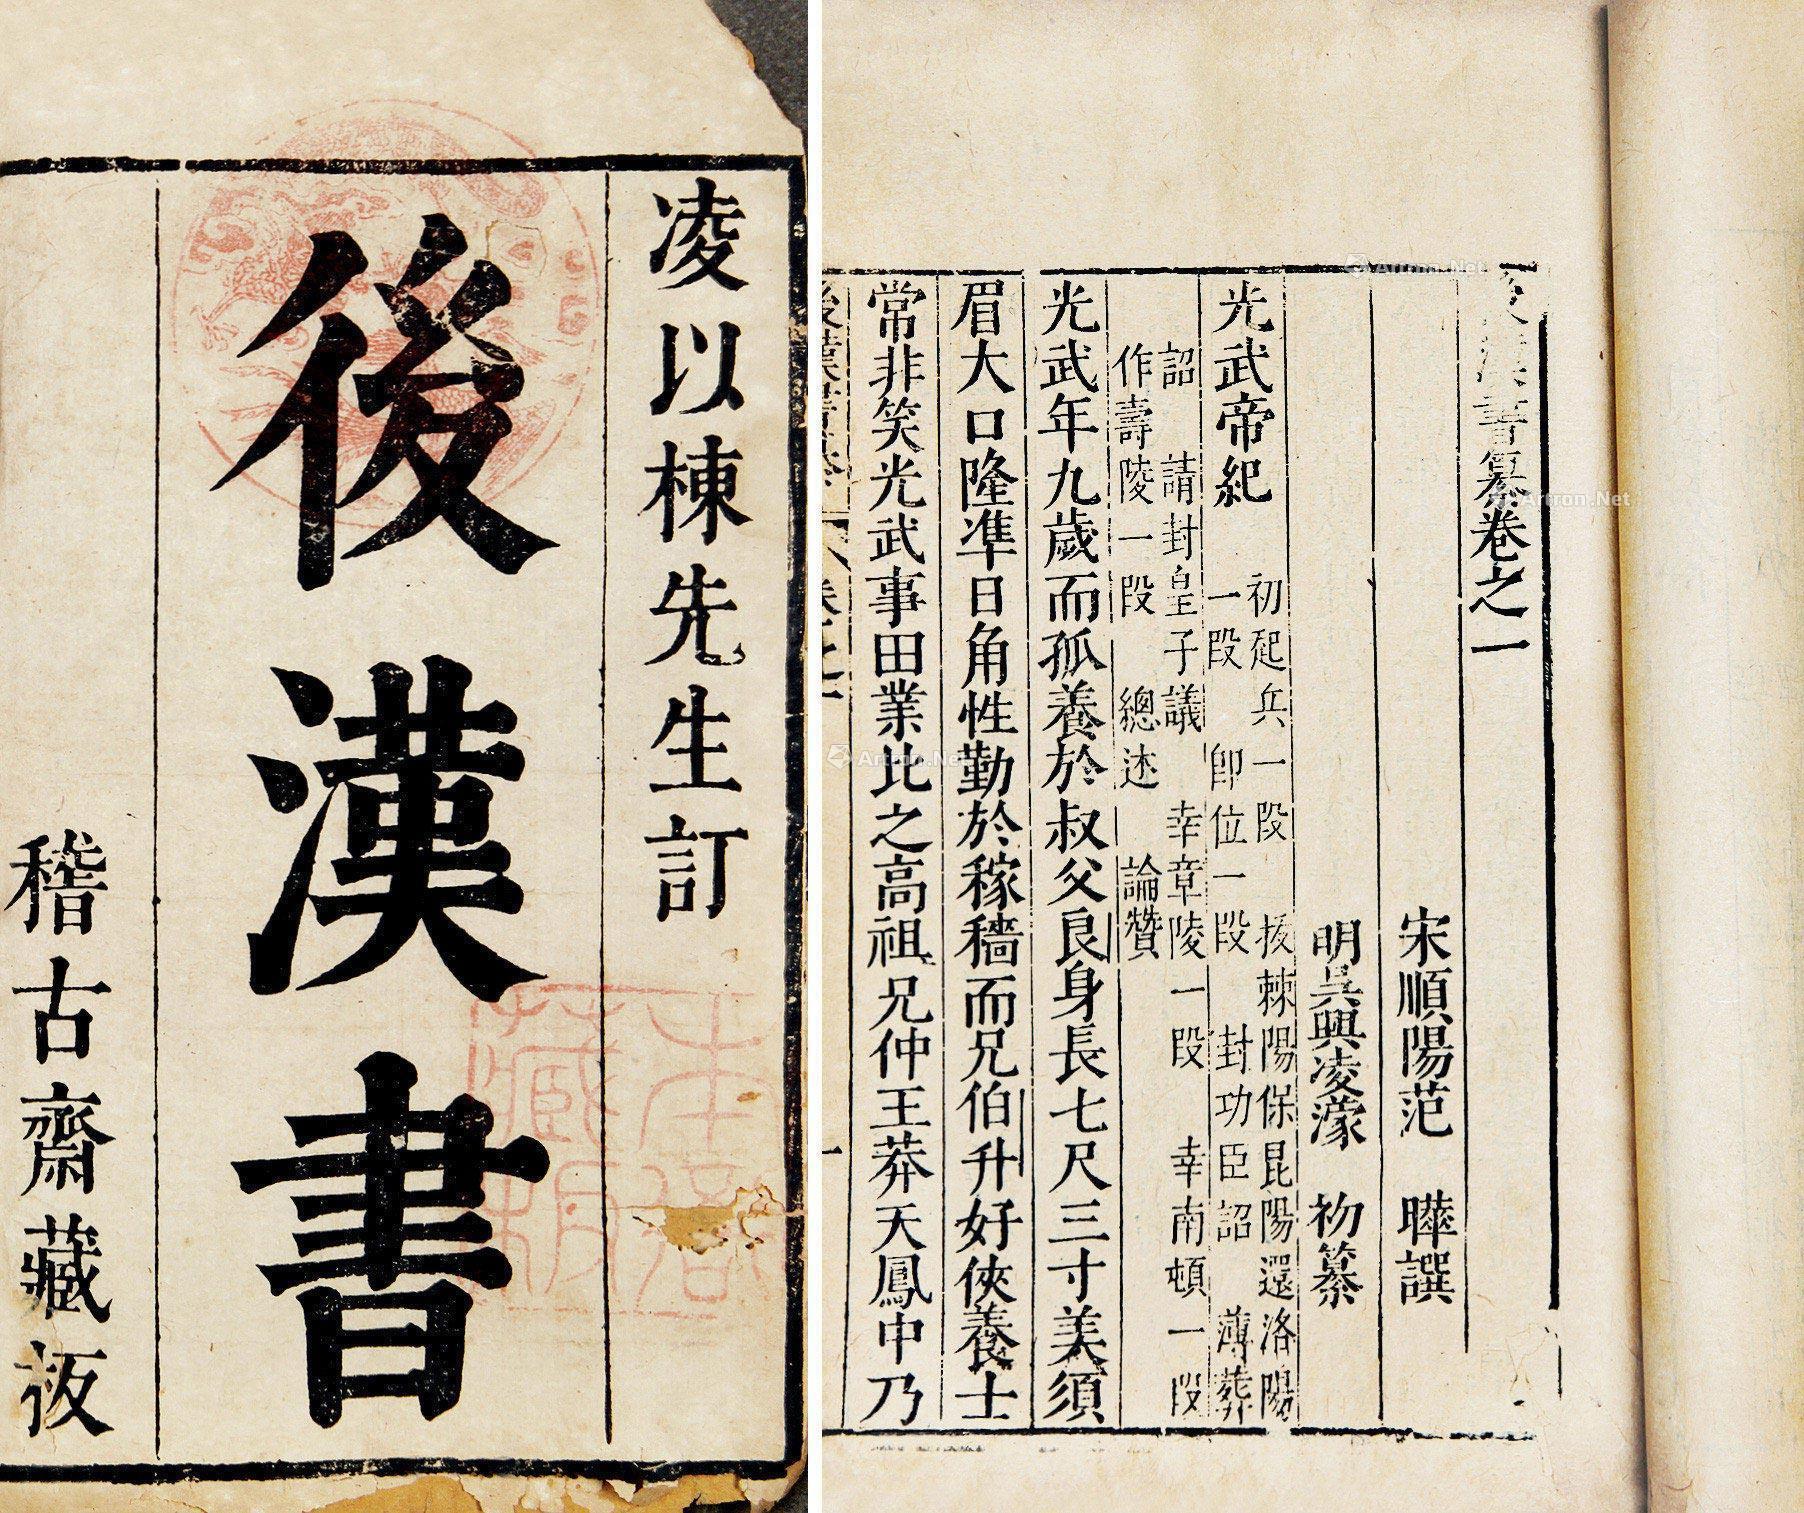 凌以棟先生訂
後漢書
稽古齋藏板
後漢書纂卷之一
宋順陽范 曄譔
明吳興凌濛 初纂
初起兵一段 拔棘陽保昆陽還洛陽
光武帝紀 一段 即位一段 封功臣詔 薄葬
詔 請封皇子議 幸章陵一段 幸南頓一段
作壽陵一段 總述 論贊
光武年九歲而孤養於叔父良身長七尺三寸美須
眉大口隆準日角性勤於稼穡而兄伯升好俠養士
常非笑光武事田業比之高祖兄仲王莽天鳳中乃
Artron.Net
Artron.Net
Artron.Net